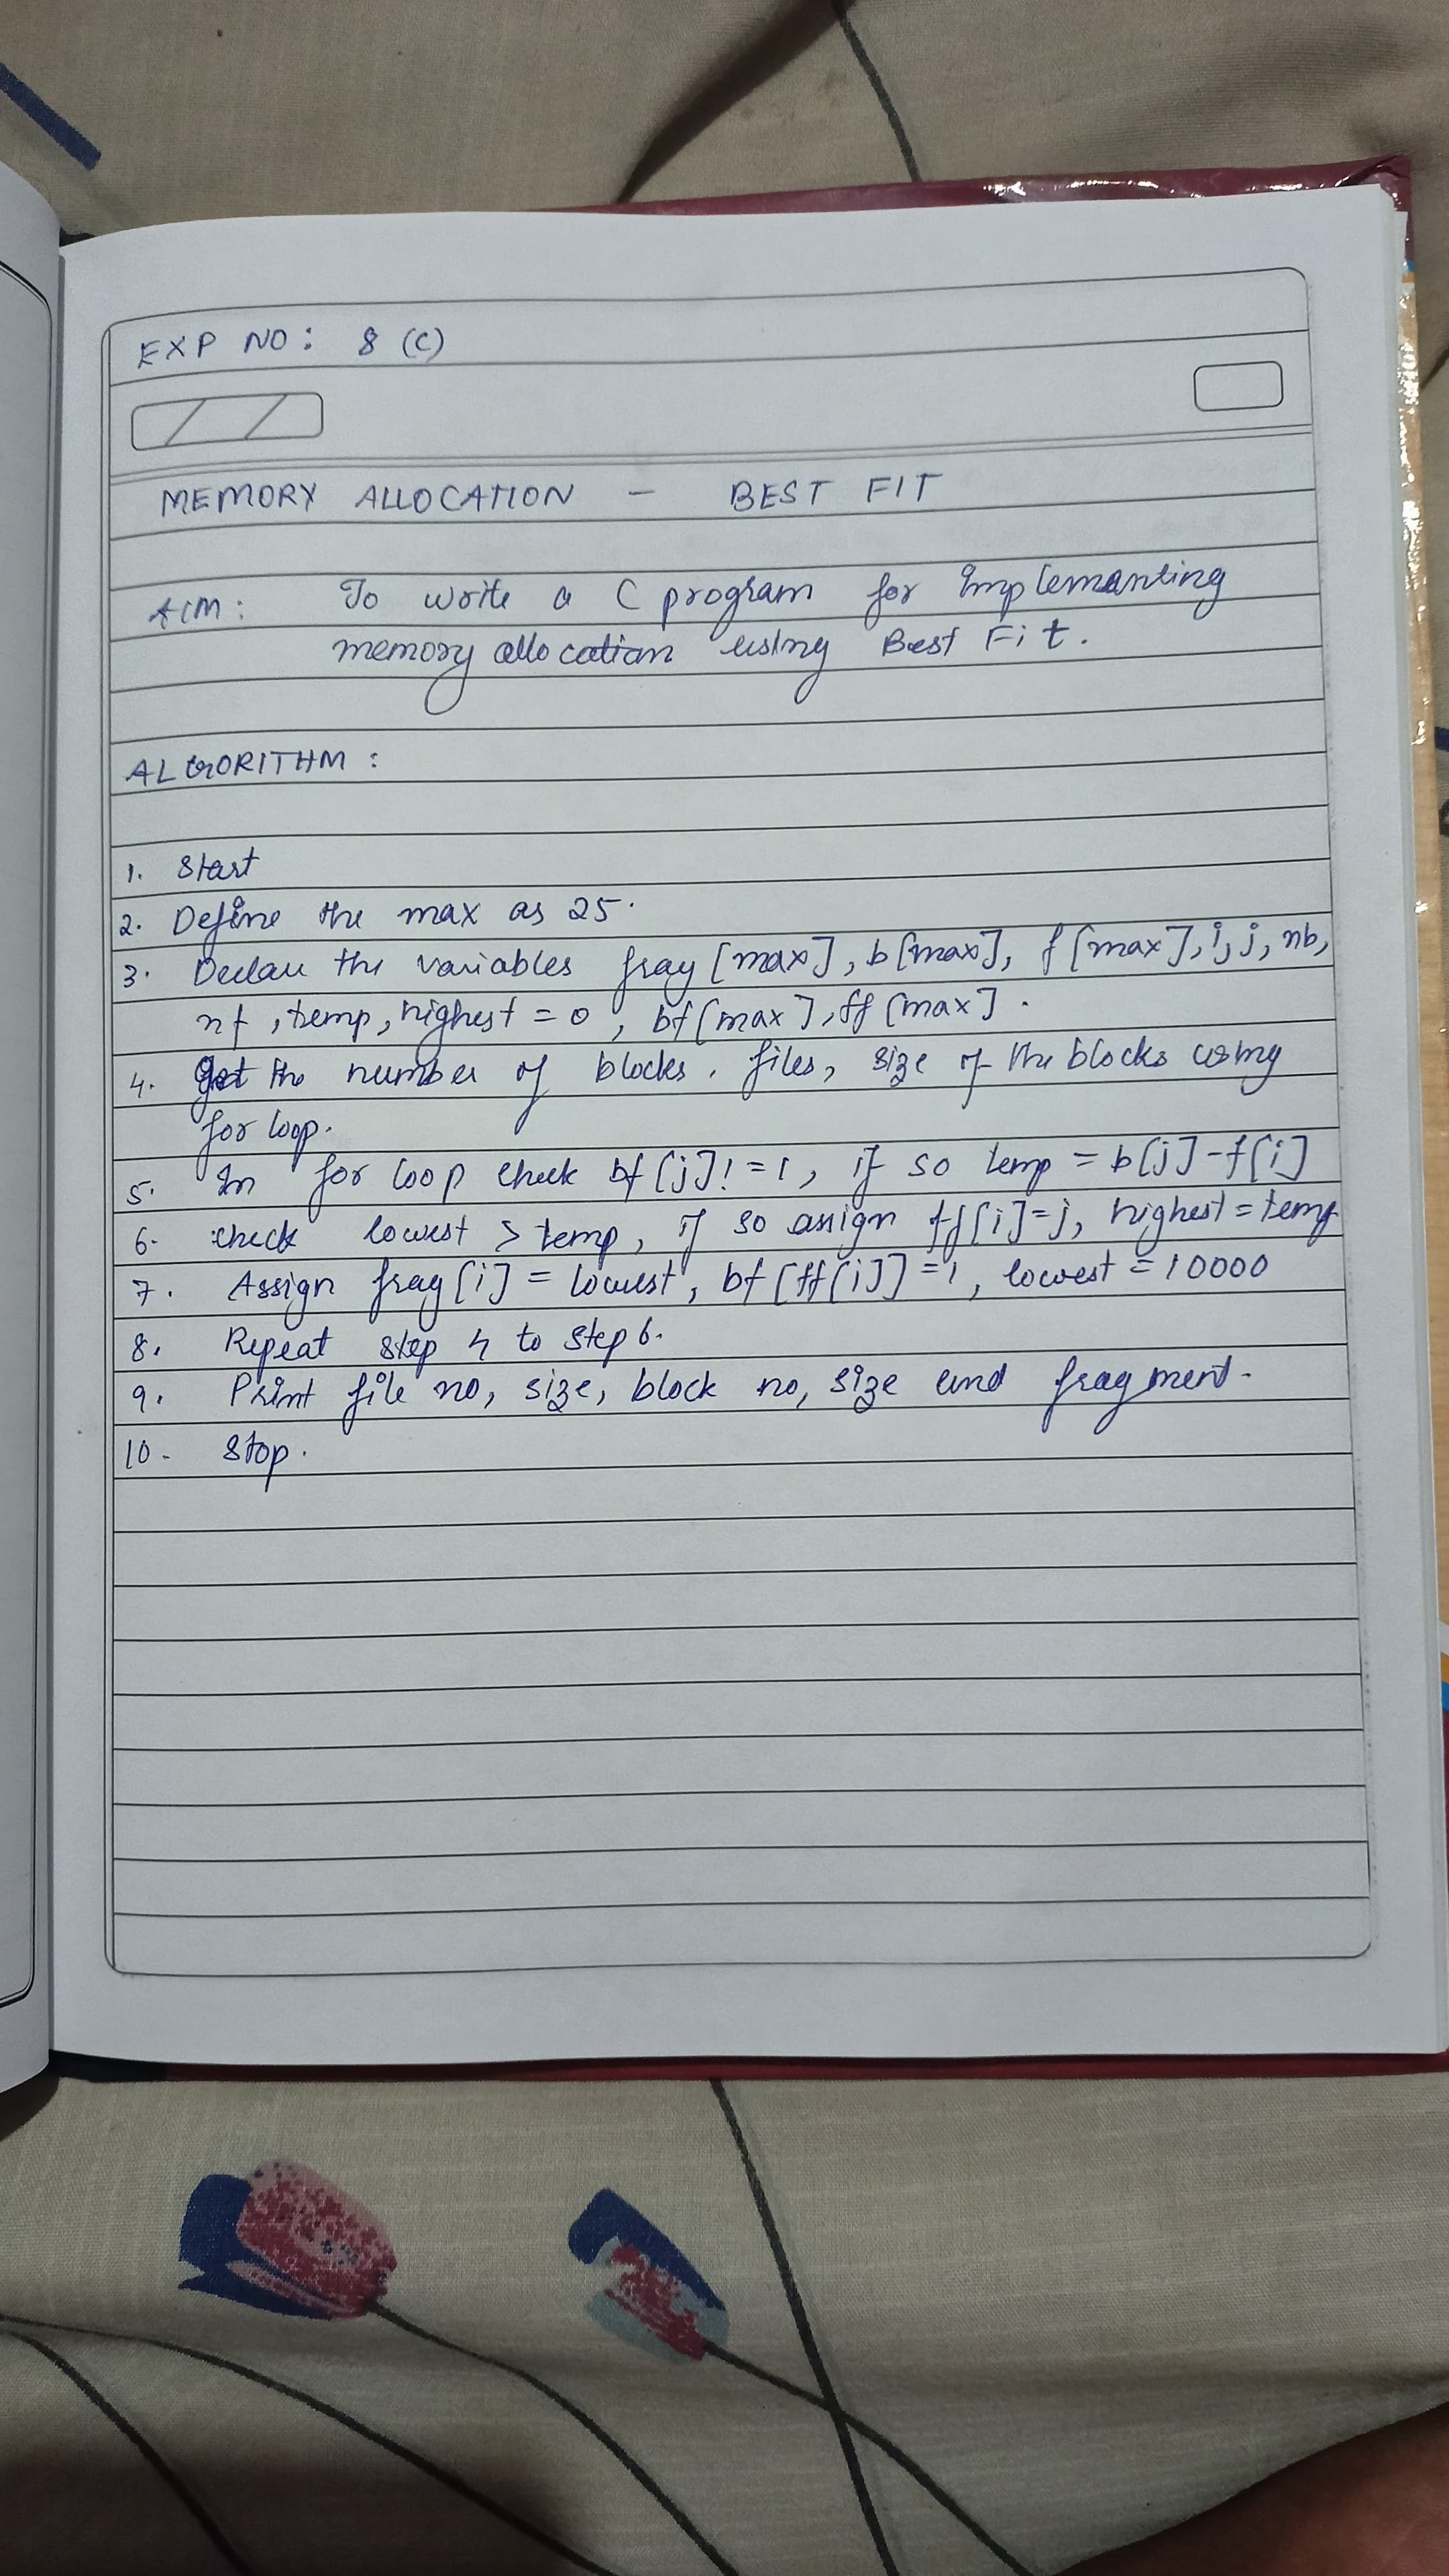 EXP NO: 8 (C)
MEMORY ALLOCATION - BEST FIT
AIM: To write a C program for implemanting
memory allocation using Best Fit.
ALGORITHM:
1. Start
2. Define the max as 25.
3. Declare the variables frag [max], b[max], f[max], i, j, nb,
nf, temp, highest = 0, bf[max], ff[max].
4. Get the number of blocks, files, size of the blocks using
for loop.
5. In for loop check bf[j]! = 1, if so temp = b[j] - f[i]
6. check lowest > temp, if so assign ff[i] = j, highest = temp
7. Assign frag[i] = lowest, bf[ff[i]] = 1, lowest = 10000
8. Repeat step 4 to step 6.
9. Print file no, size, block no, size and fragment.
10. Stop.